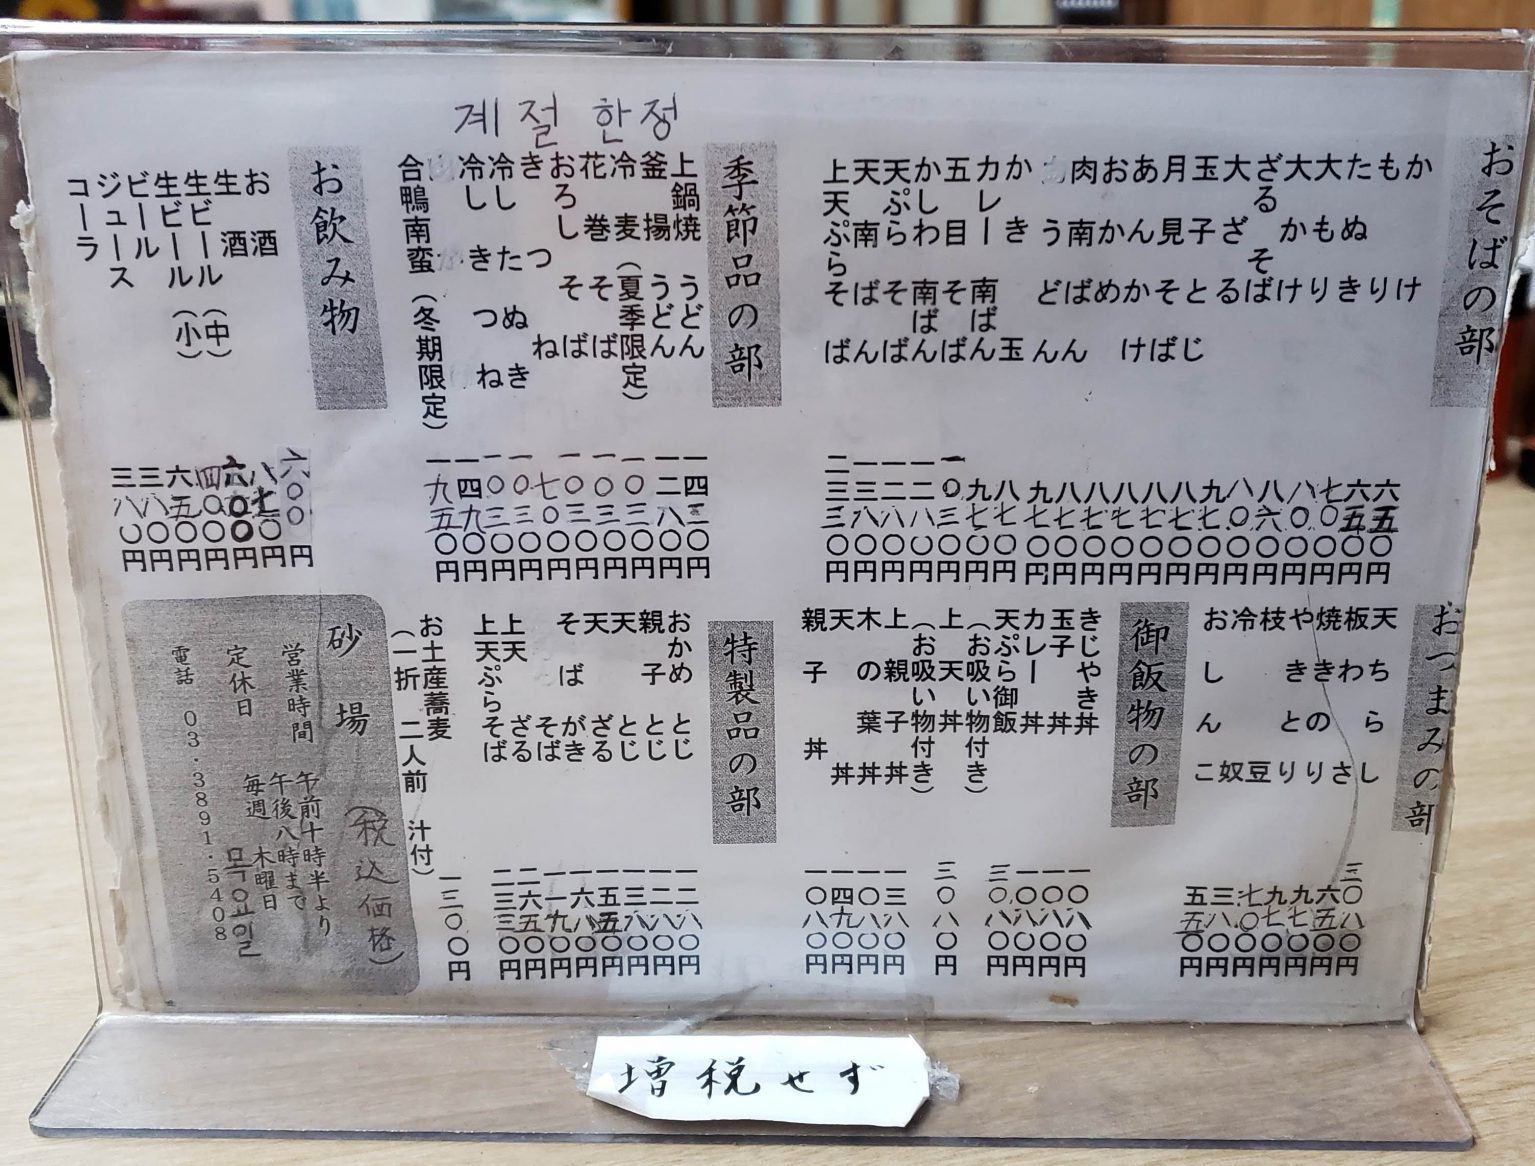 おそばの部
かけ 六五〇円
もり 六五〇円
たぬき 七〇〇円
大もり 八〇〇円
大かけ 八六〇円
ざるそば 八〇〇円
大ざる 九七〇円
玉子とじ 八七〇円
月見そば 八七〇円
あんかけ 八七〇円
おかめ 八七〇円
肉南ばん 八七〇円
うどん 九七〇円
かき玉 八七〇円
カレー南ばん 九七〇円
五目そば 一〇三〇円
かしわ南ばん 一二八〇円
天ぷらそば 一二八〇円
天南ばん 一三八〇円
上天ぷらそば 二三三〇円
계절 한정
季節品の部
上鍋焼うどん 一四三〇円
釜揚うどん 一二八〇円
冷麦(夏季限定) 一〇三〇円
花巻そば 一〇三〇円
おろしそば 一〇三〇円
きつね 七〇〇円
冷したぬき 一〇三〇円
冷しきつね 一〇三〇円
一四九〇円
合鴨南蛮(冬期限定) 一九五〇円
お飲み物
お酒 六〇〇円
生酒 八七〇円
生ビール(中) 六〇〇円
生ビール(小) 四〇〇円
ビール 六五〇円
ジュース 三八〇円
コーラ 三八〇円
おつまみの部
天ちらし 三〇八〇円
板わさ 六五〇円
焼きのり 九七〇円
やきとり 九七〇円
枝豆 七〇〇円
冷奴 三八〇円
おしんこ 五五〇円
御飯物の部
きじやき丼 一〇八〇円
玉子丼 一〇八〇円
カレー丼 一〇八〇円
天ぷら御飯(お吸い物付き) 三〇八〇円
上天丼(お吸い物付き) 三〇八〇円
上親子丼 一三八〇円
木の葉丼 一〇八〇円
天丼 一四九〇円
親子丼 一〇八〇円
特製品の部
おかめとじ 一二八〇円
親子とじ 一二八〇円
天とじ 一三八〇円
天ざる 一五五〇円
そばがき 一六八〇円
そば 一一九〇円
上天ざる 二六五〇円
上天ぷらそば 二三三〇円
お土産蕎麦
(一折 二人前 汁付) 一三〇〇円
砂場 (税込価格)
営業時間 午前十時半より
午後八時まで
定休日 毎週 木曜日
목요일
電話 03・3891・5408
増税せず